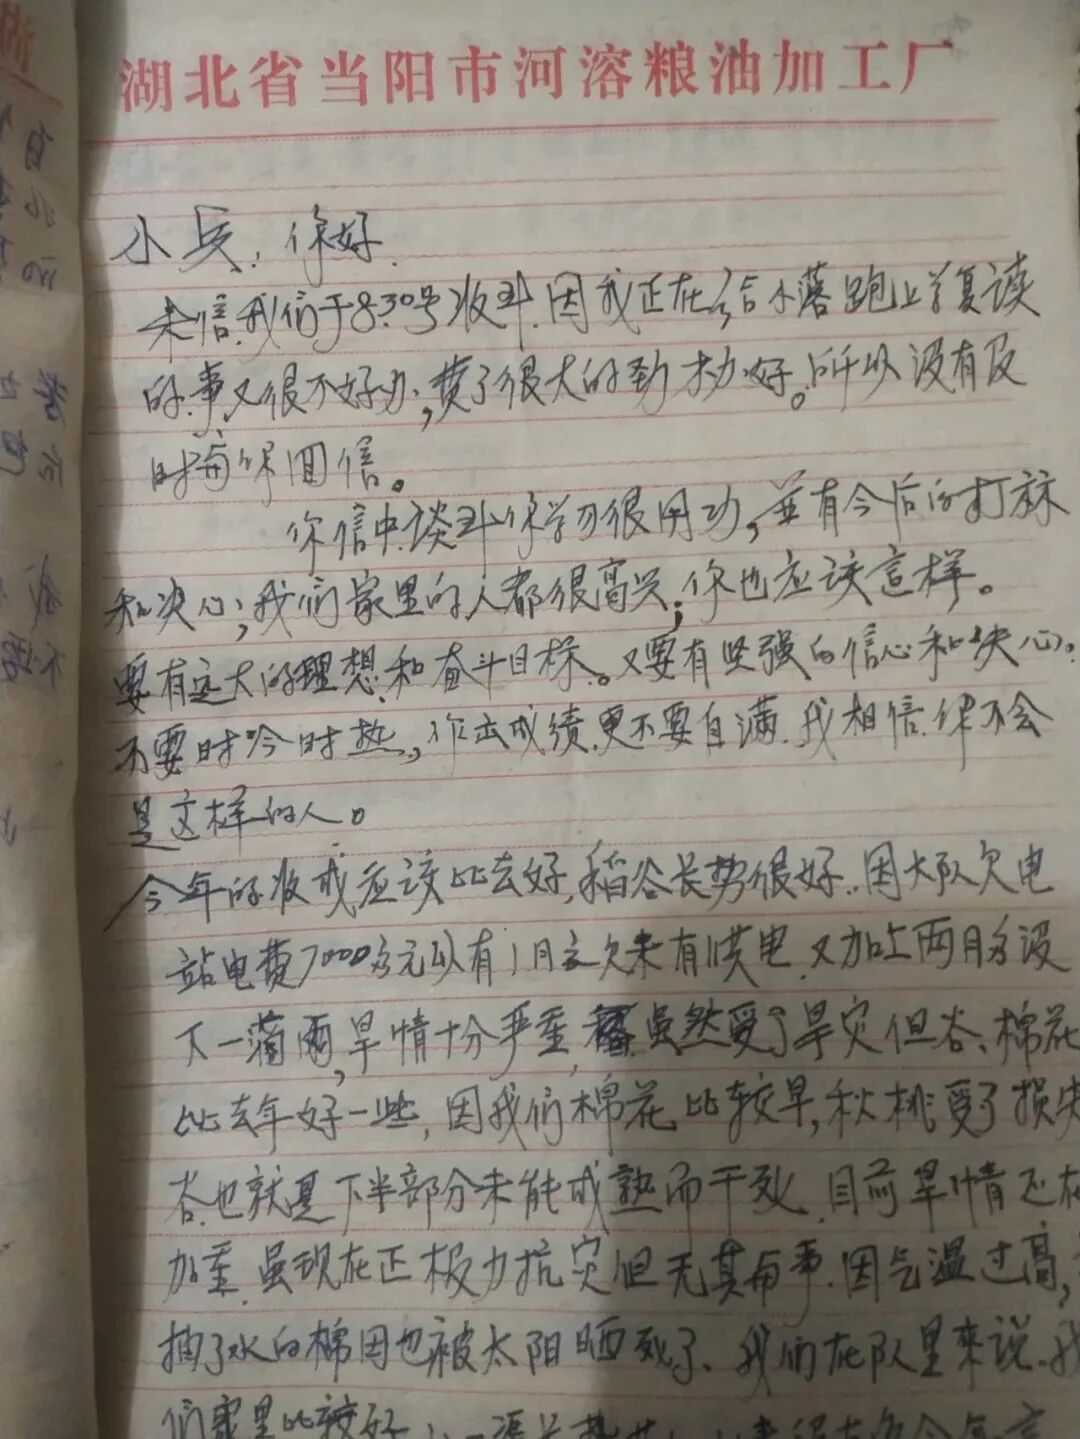 湖北省当阳市河溶粮油加工厂
小兵:你好.
来信我们于8.30号收到.因我正在给小落跑上学复读
的事又很不好办,费了很大的劲才办好。所以没有及
时给你回信。
你信中谈到你学习很用功,并有今后的打算
和决心,我们家里的人都很高兴.你也应该这样。
要有远大的理想和奋斗目标。又要有坚强的信心和决心。
不要时冷时热,作出成绩.更不要自满.我相信你不会
是这样的人。
今年的收成应该比去好,稻谷长势很好.因大队欠电
站电费7000多元以有1月之久未有供电.又加上两月多没
下一滴雨,旱情十分严重,虽然受了旱灾但谷、棉花
比去年好一些,因我们棉花比较早,秋桃受了损失
谷也就是下半部分未能成熟而干死.目前旱情还在
加重.虽现在正极力抗灾但无其而事.因气温过高,
抽了水的棉田也被太阳晒死了、我们在队里来说.我
们家里比较好